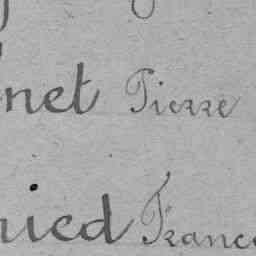 net Pierre
ried Franc